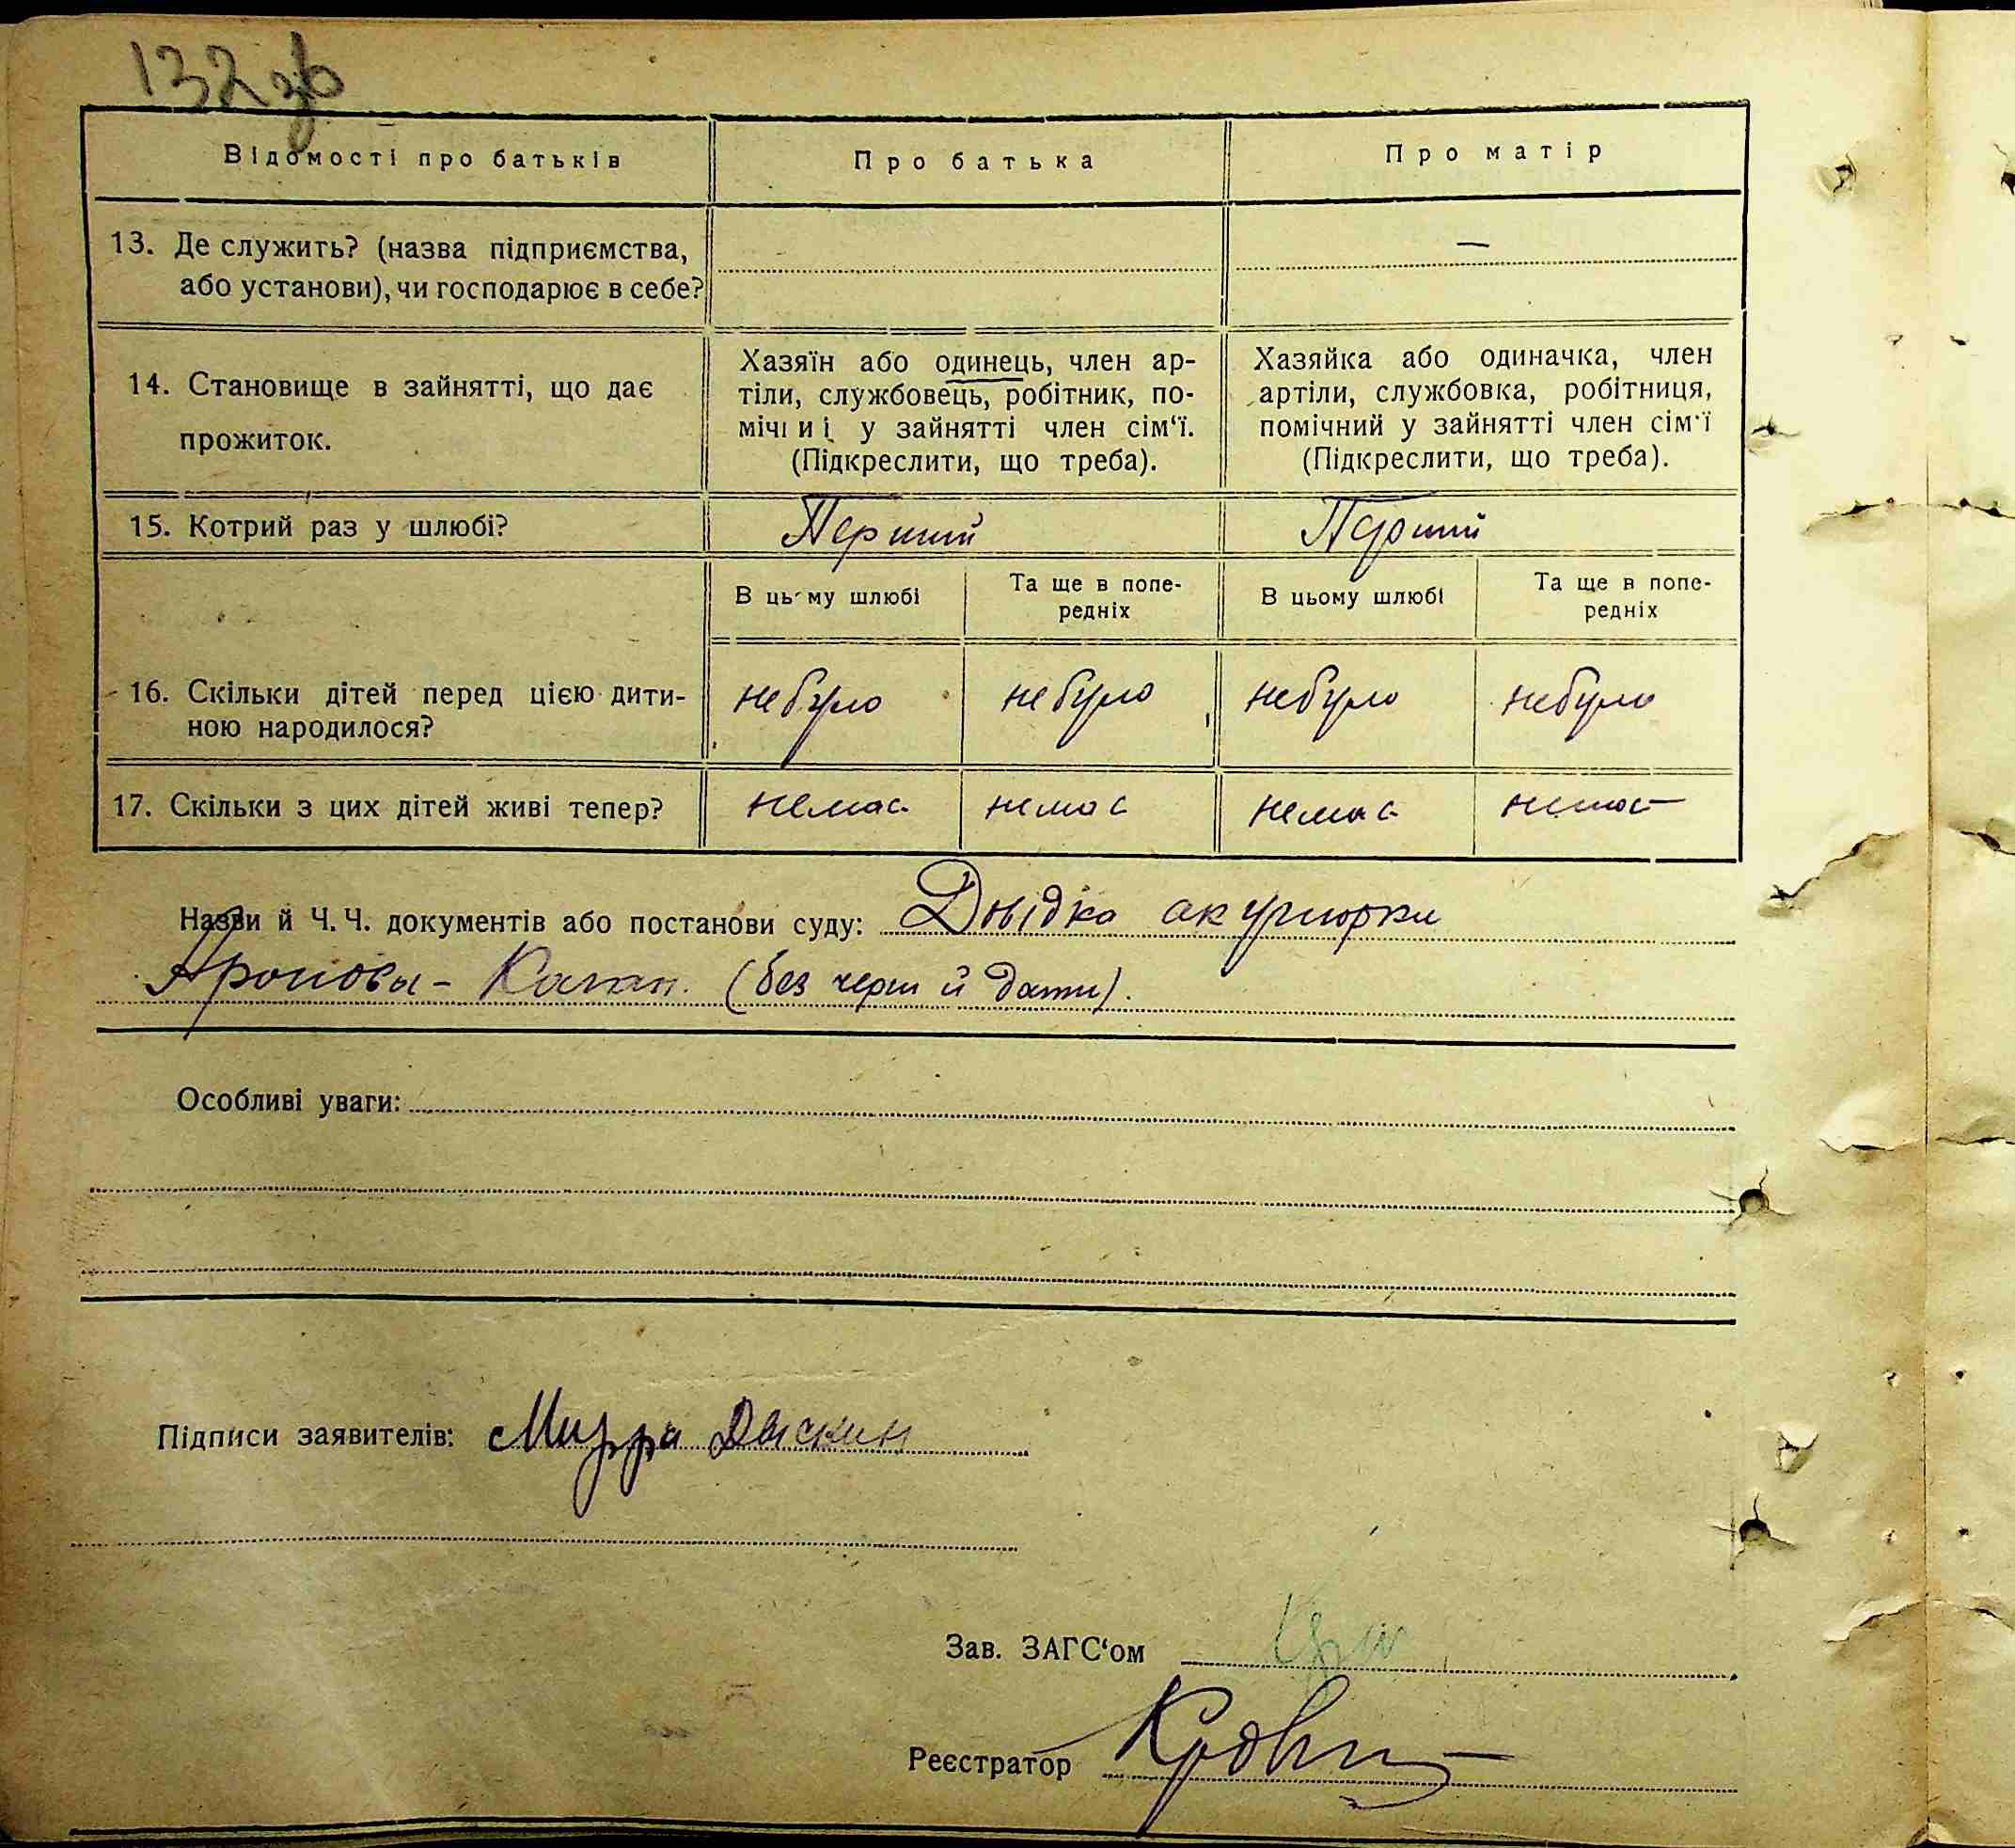 132 зв
Відомості про батьків
Про батька
Про матір
13. Де служить? (назва підприємства,
або установи), чи господарює в себе?
—
14. Становище в зайнятті, що дає
прожиток.
Хазяїн або одинець, член ар-
тіли, службовець, робітник, по-
мічниі у зайнятті член сім'ї.
(Підкреслити, що треба).
Хазяйка або одиначка, член
артіли, службовка, робітниця,
помічний у зайнятті член сім'ї
(Підкреслити, що треба).
15. Котрий раз у шлюбі?
Перший
Перший
В цьому шлюбі
Та ще в попе-
редніх
В цьому шлюбі
Та ще в попе-
редніх
16. Скільки дітей перед цією дити-
ною народилося?
небуло
небуло
небуло
небуло
17. Скільки з цих дітей живі тепер?
немає
немає
немає
немає
Назви й Ч. Ч. документів або постанови суду: Довідка акушорки
Ароновы - Каган. (без черги й дати).
Особливі уваги:
Підписи заявителів: Мирра Дыскин
Зав. ЗАГС'ом
Реєстратор